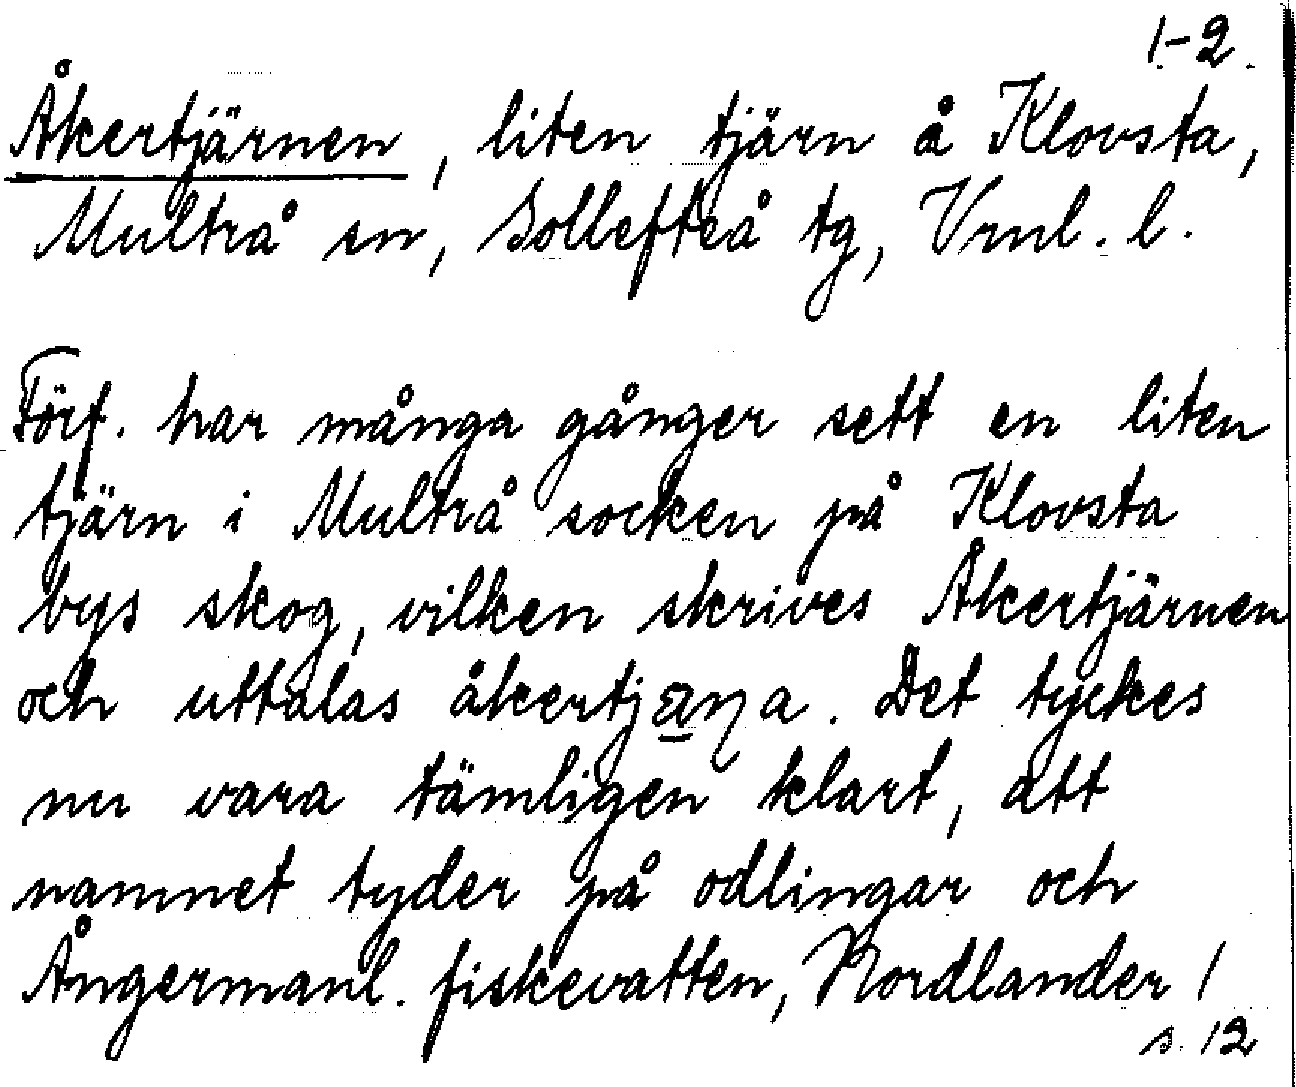 1-2.
Åkertjärnen, liten tjärn å Klovsta,
Multrå sn, Sollefteå tg, Vrnl. l.
Förf. har många gånger sett en liten
tjärn i Multrå socken på Klovsta
bys skog, vilken skrives Åkertjärnen
och uttalas åkertjaṉa. Det tyckes
nu vara tämligen klart, att
namnet tyder på odlingar och
Ångermanl. fiskevatten, Nordlander 1
s. 12